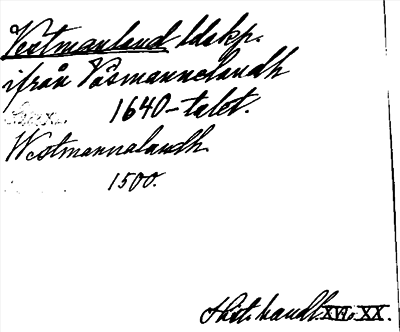 Vestmanland ldskp.
ifrån Väsmannelandh
1640-talet.
Westmannalandh.
1500.
handl. XVI. XX.